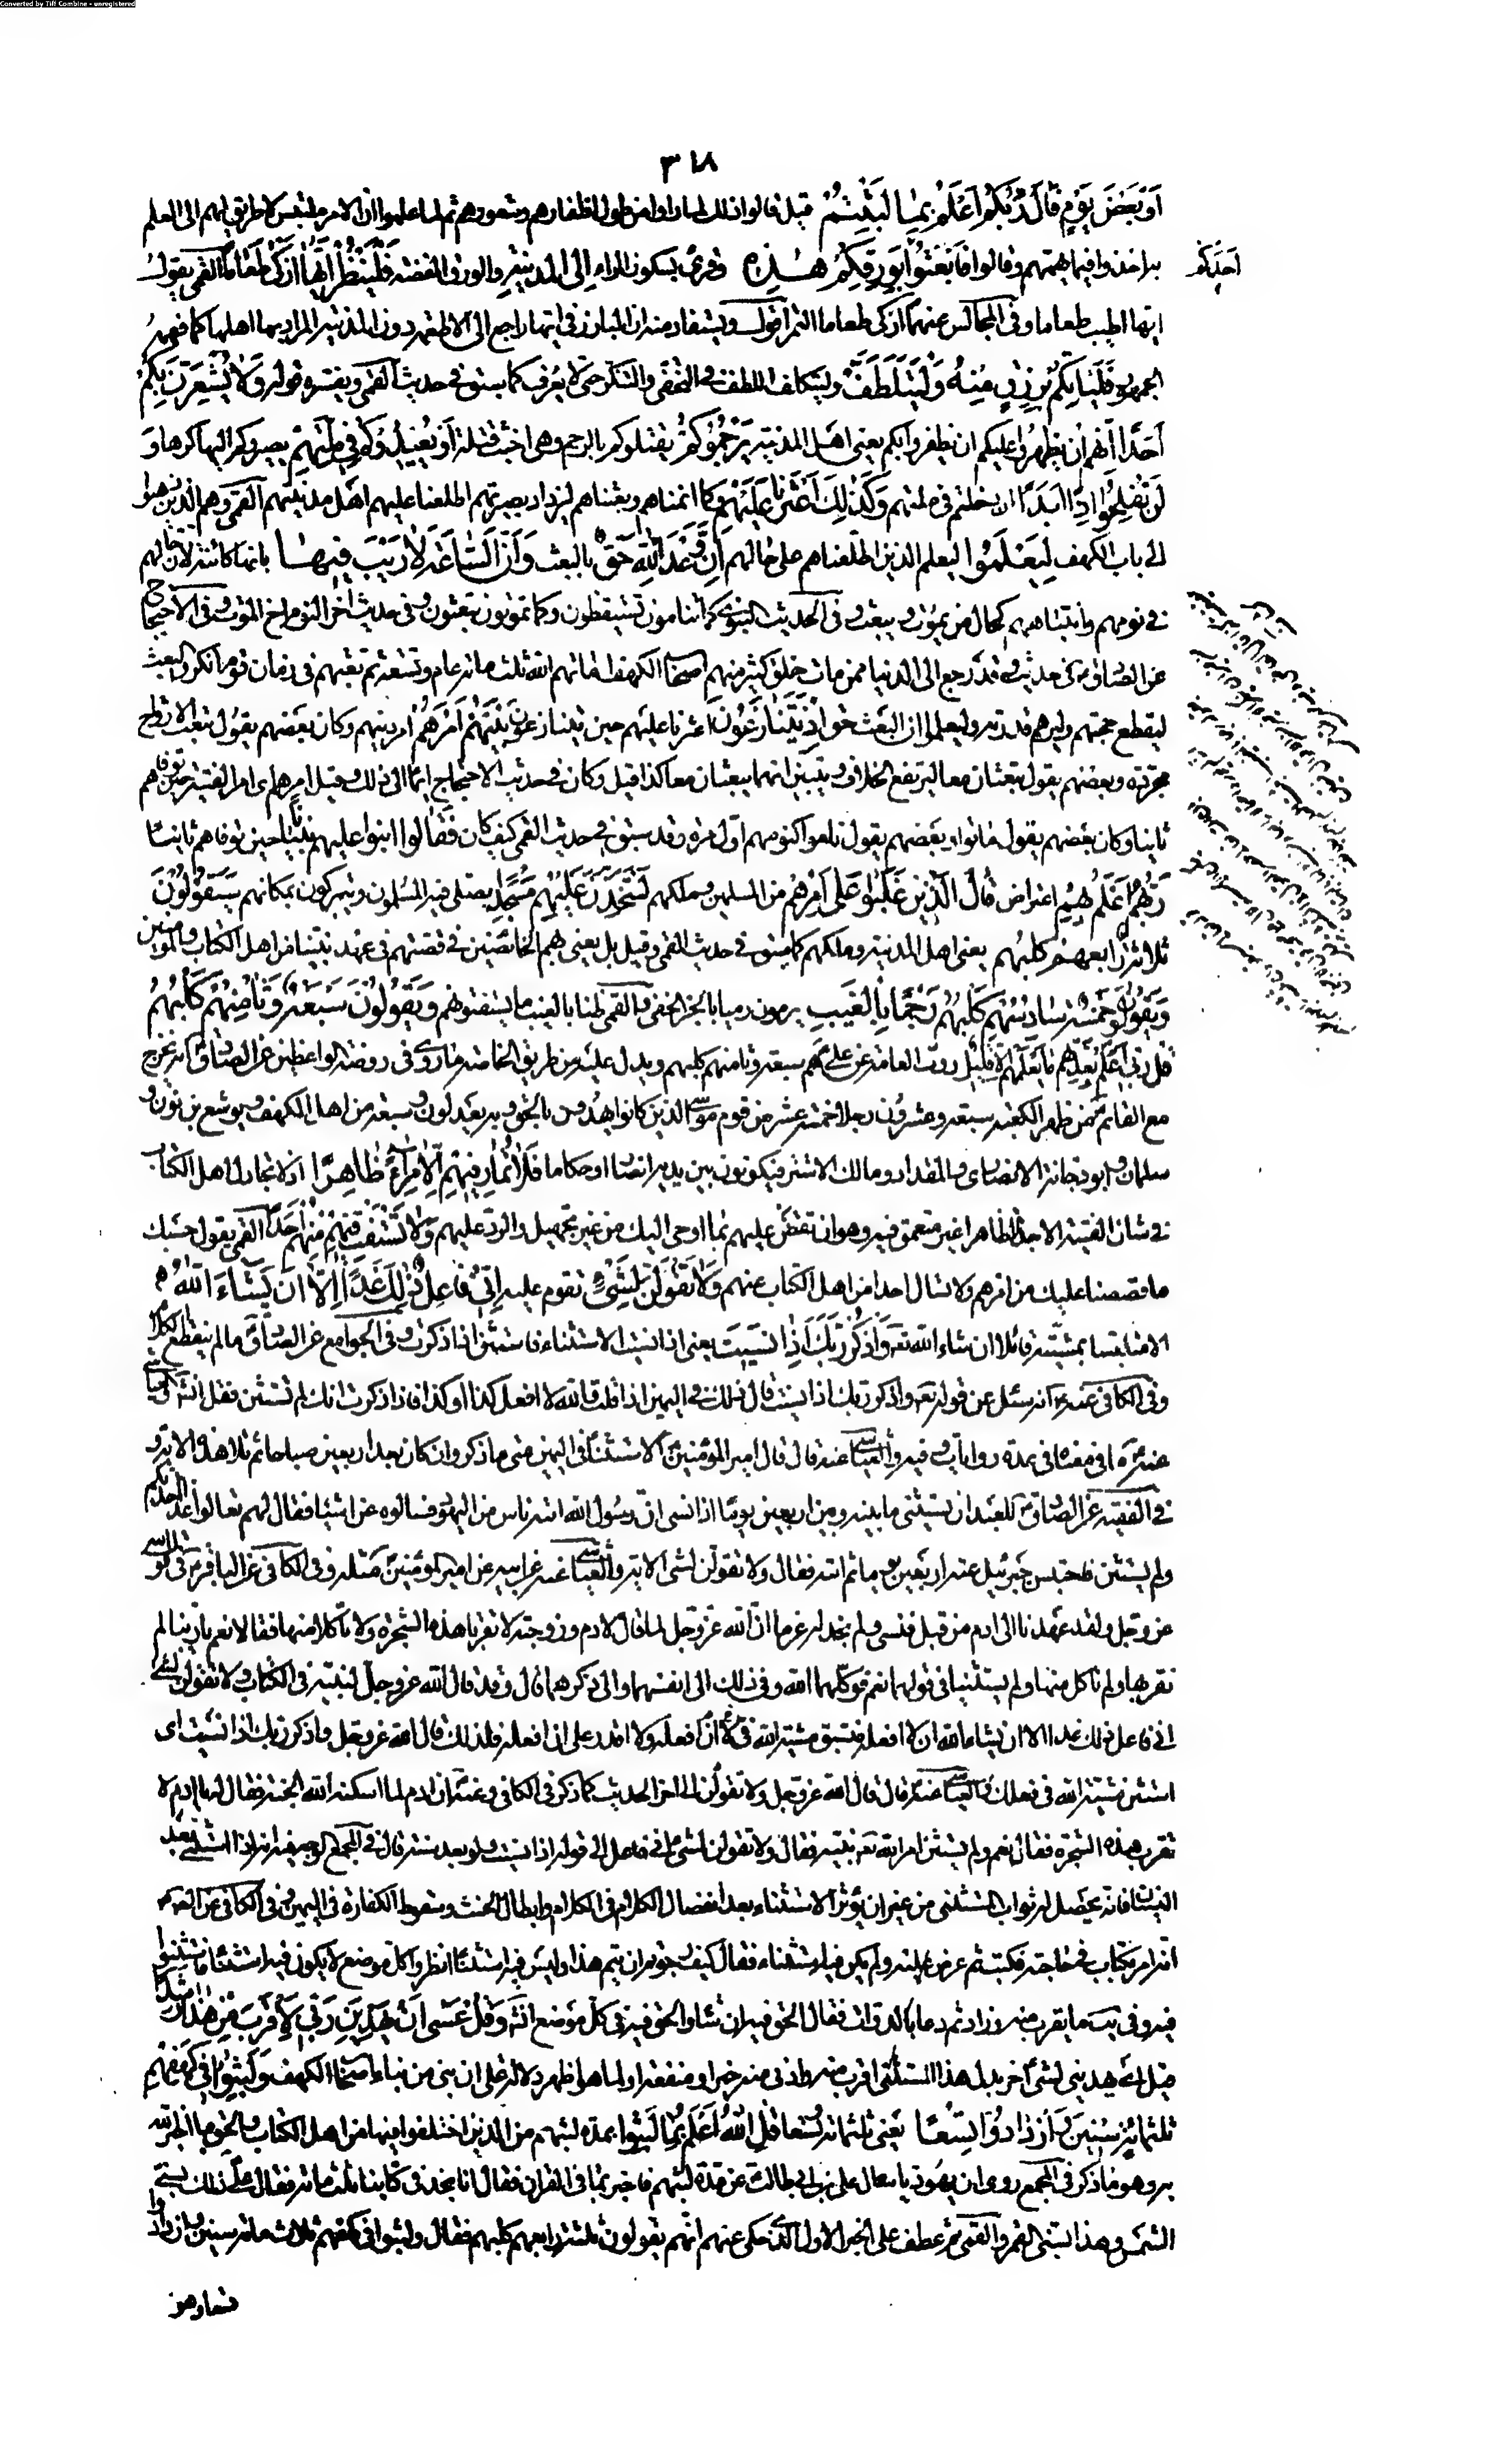 Converted by Tiff Combine - unregistered
٣١٨
اَوْ بَعْضَ يَوْمٍ قَالُوا رَبُّكُمْ اَعْلَمُ بِمَا لَبِثْتُمْ قيل قالوا ذلك لما راوا من طول اظفارهم وشعورهم ثم لما علموا ان الامر ملتبس لا طريق لهم الى العلم
به اخذوا فيما يهمهم وقالوا فَابْعَثُوا بِوَرِقِكُمْ هٰذِهِ وقرئ بسكون الراء اِلَى الْمَدِينَةِ والورق الفضة فَلْيَنْظُرْ اَيُّهَا اَزْكٰى طَعَامًا القمى يقول
احدكم
ايها اطيب طعاما وفى المجالس عنهم ازكى طعاما التمر اقول ويستفاد منه ان البارز فى ايها راجع الى الاطعمة دون المدينة المراد بها اهلها كما فهمه
الجمهور فَلْيَاْتِكُمْ بِرِزْقٍ مِنْهُ وَلْيَتَلَطَّفْ وليتكلف اللطف فى التخفى والتنكر حتى لا يعرف كما سبق فى حديث القمى ويفسره قوله وَلَا يُشْعِرَنَّ بِكُمْ
اَحَدًا اِنَّهُمْ اِنْ يَظْهَرُوا عَلَيْكُمْ ان يظفروا بكم يعنى اهل المدينة يَرْجُمُوكُمْ يقتلوكم بالرجم وهى اخبث قتلة اَوْ يُعِيدُوكُمْ فِى مِلَّتِهِمْ يصيروكم اليها كرها وَ
لَنْ تُفْلِحُوا اِذًا اَبَدًا ان دخلتم فى ملتهم وَكَذٰلِكَ اَعْثَرْنَا عَلَيْهِمْ وكما انمناهم وبعثناهم ليزداد بصيرتهم اطلعنا عليهم اهل مدينتهم القمى وهم الذين ذهبوا
الى باب الكهف لِيَعْلَمُوا ليعلم الذين اطلعناهم على حالهم اَنَّ وَعْدَ اللّٰهِ حَقٌّ بالبعث وَاَنَّ السَّاعَةَ لَا رَيْبَ فِيهَا بانها كائنة لان حالهم
فى نومهم وانتباههم كحال من يموت ويبعث وفى الحديث النبوى كما تنامون تستيقظون وكما تموتون تبعثون وفى حديث اخر النوم اخ الموت وفى الاحتجاج
عن الصادق ع فى حديث وقد رجع الى الدنيا ممن مات خلق كثير منهم اصحاب الكهف اماتهم الله ثلث مائة عام وتسعة ثم بعثهم فى زمان قوم انكروا البعث
ليقطع حجتهم وليريهم قدرته وليعلموا ان البعث حق اِذْ يَتَنَازَعُونَ اعثرنا عليهم حين يتنازعون بَيْنَهُمْ اَمْرَهُمْ امر دينهم وكان بعضهم يقول تبعث الارواح
مجردة وبعضهم يقول تبعثان معا ليرتفع الخلاف ويتبين انهما يبعثان معا كذا قيل وكان فى حديث الاحتجاج ايماء الى ذلك وقيل امرهم اى امر الفتية حين توفاهم
ثانيا وكان بعضهم يقول ماتوا وبعضهم يقول ناموا كنومهم اول مرة وقد سبق فى حديث القمى كيف كان فَقَالُوا ابْنُوا عَلَيْهِمْ بُنْيَانًا حين توفاهم ثانيا
رَبُّهُمْ اَعْلَمُ بِهِمْ اعتراض قَالَ الَّذِينَ غَلَبُوا عَلٰى اَمْرِهِمْ من المسلمين وملكهم لَنَتَّخِذَنَّ عَلَيْهِمْ مَسْجِدًا يصلى فيه المسلمون ويتبركون بمكانهم سَيَقُولُونَ
ثَلٰثَةٌ رَابِعُهُمْ كَلْبُهُمْ يعنى اهل المدينة وملكهم كما سبق فى حديث القمى وقيل بل يعنى بهم الخائضين فى قصتهم فى عهد نبينا من اهل الكتاب والمؤمنين
وَيَقُولُونَ خَمْسَةٌ سَادِسُهُمْ كَلْبُهُمْ رَجْمًا بِالْغَيْبِ يرمون رميا بالخبر الخفى القمى ظنا بالغيب ما يستفتونهم وَيَقُولُونَ سَبْعَةٌ وَثَامِنُهُمْ كَلْبُهُمْ
قُلْ رَبِّى اَعْلَمُ بِعِدَّتِهِمْ مَا يَعْلَمُهُمْ اِلَّا قَلِيلٌ روت العامة عن على ع هم سبعة وثامنهم كلبهم ويدل عليه من طريق الخاصة ما روى فى روضة الواعظين عن الصادق ع انه يخرج
مع القائم ع من ظهر الكعبة سبعة وعشرون رجلا خمسة عشر من قوم موسى الذين كانوا يهدون بالحق وبه يعدلون وسبعة من اهل الكهف ويوشع بن نون و
سلمان وابو دجانة الانصارى والمقداد ومالك الاشتر فيكونون بين يديه انصارا او حكاما فَلَا تُمَارِ فِيهِمْ اِلَّا مِرَاءً ظَاهِرًا اى لا تجادل اهل الكتاب
فى شان الفتية الا جدالا ظاهرا غير متعمق فيه وهو ان تقص عليهم بما اوحى اليك من غير تجهيل والرد عليهم وَلَا تَسْتَفْتِ فِيهِمْ مِنْهُمْ اَحَدًا القمى يقول حسبك
ما قصصنا عليك من امرهم ولا تسال احدا من اهل الكتاب عنهم وَلَا تَقُولَنَّ لِشَىْءٍ تقوم عليه اِنِّى فَاعِلٌ ذٰلِكَ غَدًا اِلَّا اَنْ يَشَاءَ اللّٰهُ
الا متلبسا بمشيته قائلا ان شاء الله تعه وَاذْكُرْ رَبَّكَ اِذَا نَسِيتَ يعنى اذا نسيت الاستثناء فاستثن اذا ذكرت وفى الجوامع عن الصادق ع ما لم ينقطع الكلام
وفى الكافى عنه ع انه سئل عن قوله تعه واذكر ربك اذا نسيت قال ذلك فى اليمين اذا قلت والله لا افعل كذا او كذا فاذا ذكرت انك لم تستثن فقل انشاء
عنه قال قال امير المؤمنين ع الاستثناء فى اليمين متى ما ذكر وان كان بعد اربعين صباحا ثم تلا هذه الاية و
فى الفقيه عن الصادق ع للعبد ان يستثنى ما بينه وبين اربعين يوما اذا نسى ان رسول الله اتاه ناس من اليهود فسالوه عن اشياء فقال لهم تعالوا غدا احدثكم
ولم يستثن فاحتبس جبرئيل عنه اربعين يوما ثم اتاه فقال ولا تقولن لشئ الاية والعياشى عنه عن ابيه عن امير المؤمنين ع مثله وفى الكافى عن الباقر ع فى قول الله
عز وجل ولقد عهدنا الى ادم من قبل فنسى ولم نجد له عزما ان الله عز وجل لما قال لادم وزوجته لا تقربا هذه الشجرة ولا تاكلا منها فقالا نعم يا ربنا لم
نقربها ولم ناكل منها ولم يستثنيا فى قولهما نعم فوكلهما الله فى ذلك الى انفسهما والى ذكرهما قال وقد قال الله عز وجل لنبيه فى الكتاب ولا تقولن لشئ
انى فاعل ذلك غدا الا ان يشاء الله ان لا افعله فتسبق مشية الله فى ان لا افعله فلا اقدر على ان افعله فلذلك قال الله عز وجل واذكر ربك اذا نسيت اى
استثن مشية الله فى فعلك والعياشى عنه ع قال قال الله عز وجل ولا تقولن الى اخر الحديث كما ذكر فى الكافى وعنه ع ان ادم لما اسكنه الله الجنة فقال له يا ادم لا
تقرب هذه الشجرة فقال نعم ولم يستثن فامر الله تعه نبيه فقال ولا تقولن لشئ انى فاعل الى قوله اذا نسيت ولو بعد سنة قال فى المجمع الوجه فيه انه اذا استثنى بعد
النسيان فانه يحصل له ثواب المستثنى من غير ان يؤثر الاستثناء بعد انفصال الكلام فى الكلام وابطال الحنث وسقوط الكفارة فى اليمين وفى الكافى عن الصادق ع
انه امر بكتاب فى حاجة فكتب ثم عرض عليه ولم يكن فيه استثناء فقال كيف رجوتم ان يتم هذا وليس فيه استثناء انظروا كل موضع لا يكون فيه استثناء فاستثنوا
فيه فقال الحق فيه ان شاء الله الحق فيه فى كل موضع انشاء الله وَقُلْ عَسٰى اَنْ يَهْدِيَنِ رَبِّى لِاَقْرَبَ مِنْ هٰذَا رَشَدًا
قيل اى يهدينى لشئ اخر بدل هذا المنسى اقرب منه رشدا وادنى منه خيرا او منفعة او لما هو اظهر دلالة على انى نبى من نباء اصحاب الكهف وَلَبِثُوا فِى كَهْفِهِمْ
ثَلٰثَمِائَةٍ سِنِينَ وَازْدَادُوا تِسْعًا يعنى ثلثمائة وتسعا قُلِ اللّٰهُ اَعْلَمُ بِمَا لَبِثُوا بمدة لبثهم من الذين اختلفوا فيها من اهل الكتاب والحق ما اخبر الله
به وهو ما ذكر فى المجمع روى ان يهوديا سال على بن ابى طالب ع عن مدة لبثهم فاخبر بما فى القران فقال انا نجد فى كتابنا ثلث مائة فقال ع ذلك بسنى
الشمس وهذا بسنى القمر والقمى ع عطف على الخبر الاول الذى حكى عنهم انهم يقولون ثلثة رابعهم كلبهم فقال ولبثوا فى كهفهم ثلاث مائة سنين وازدادوا
تسعا وهو